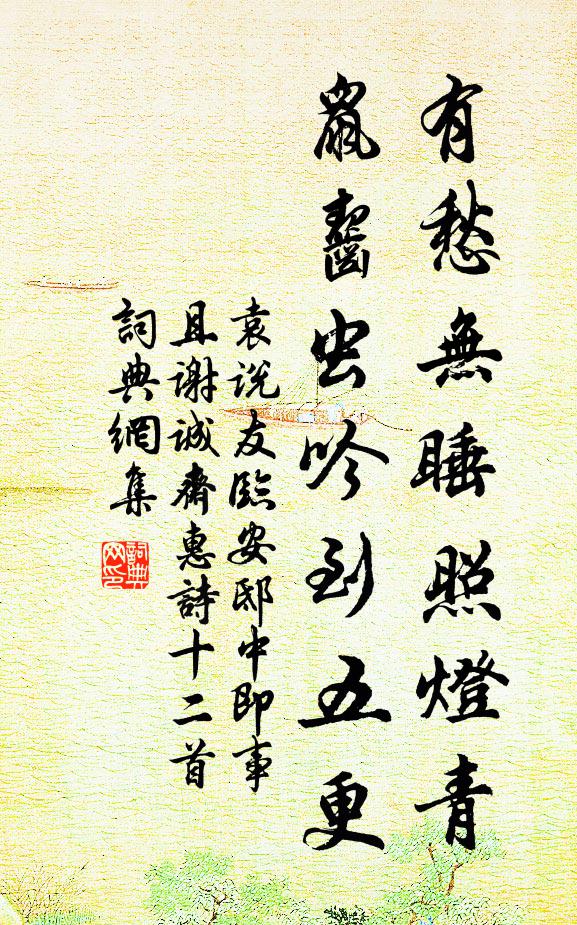 有愁無睡照燈青
鼠齧虫吟到五更
袁説友臨安邸中即事
且謝誠齋惠詩十二首
詞典網集
詞典网印